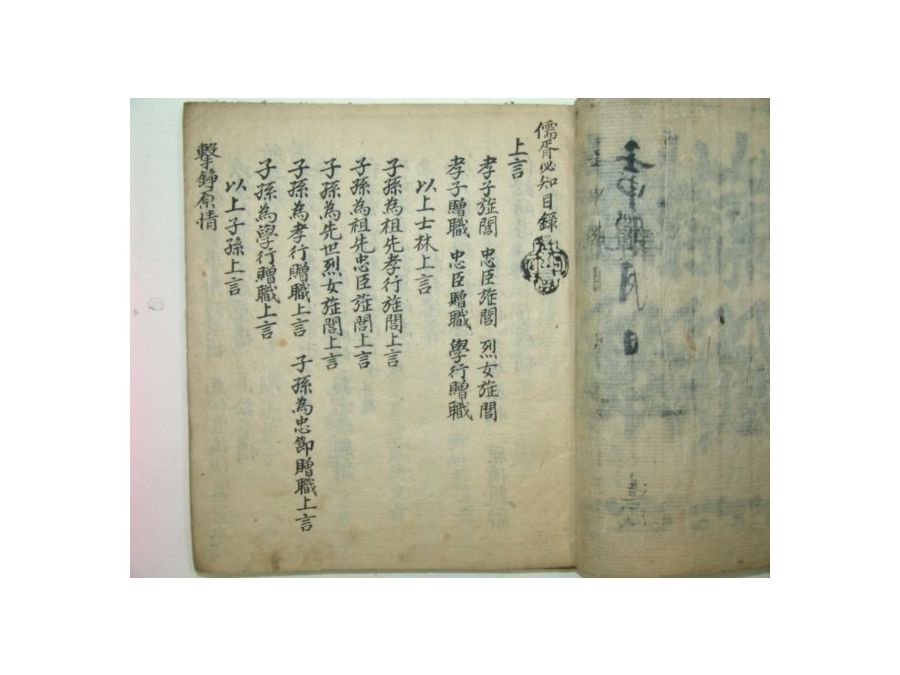 壬申
日
儒胥必知目錄
上言
孝子㫌閭 忠臣㫌閭 烈女㫌閭
孝子贈職 忠臣贈職 學行贈職
以上士林上言
子孫為祖先孝行㫌閭上言
子孫為祖先忠臣㫌閭上言
子孫為先世烈女㫌閭上言
子孫為孝行贈職上言 子孫為忠節贈職上言
子孫為學行贈職上言
以上子孫上言
擊錚原情